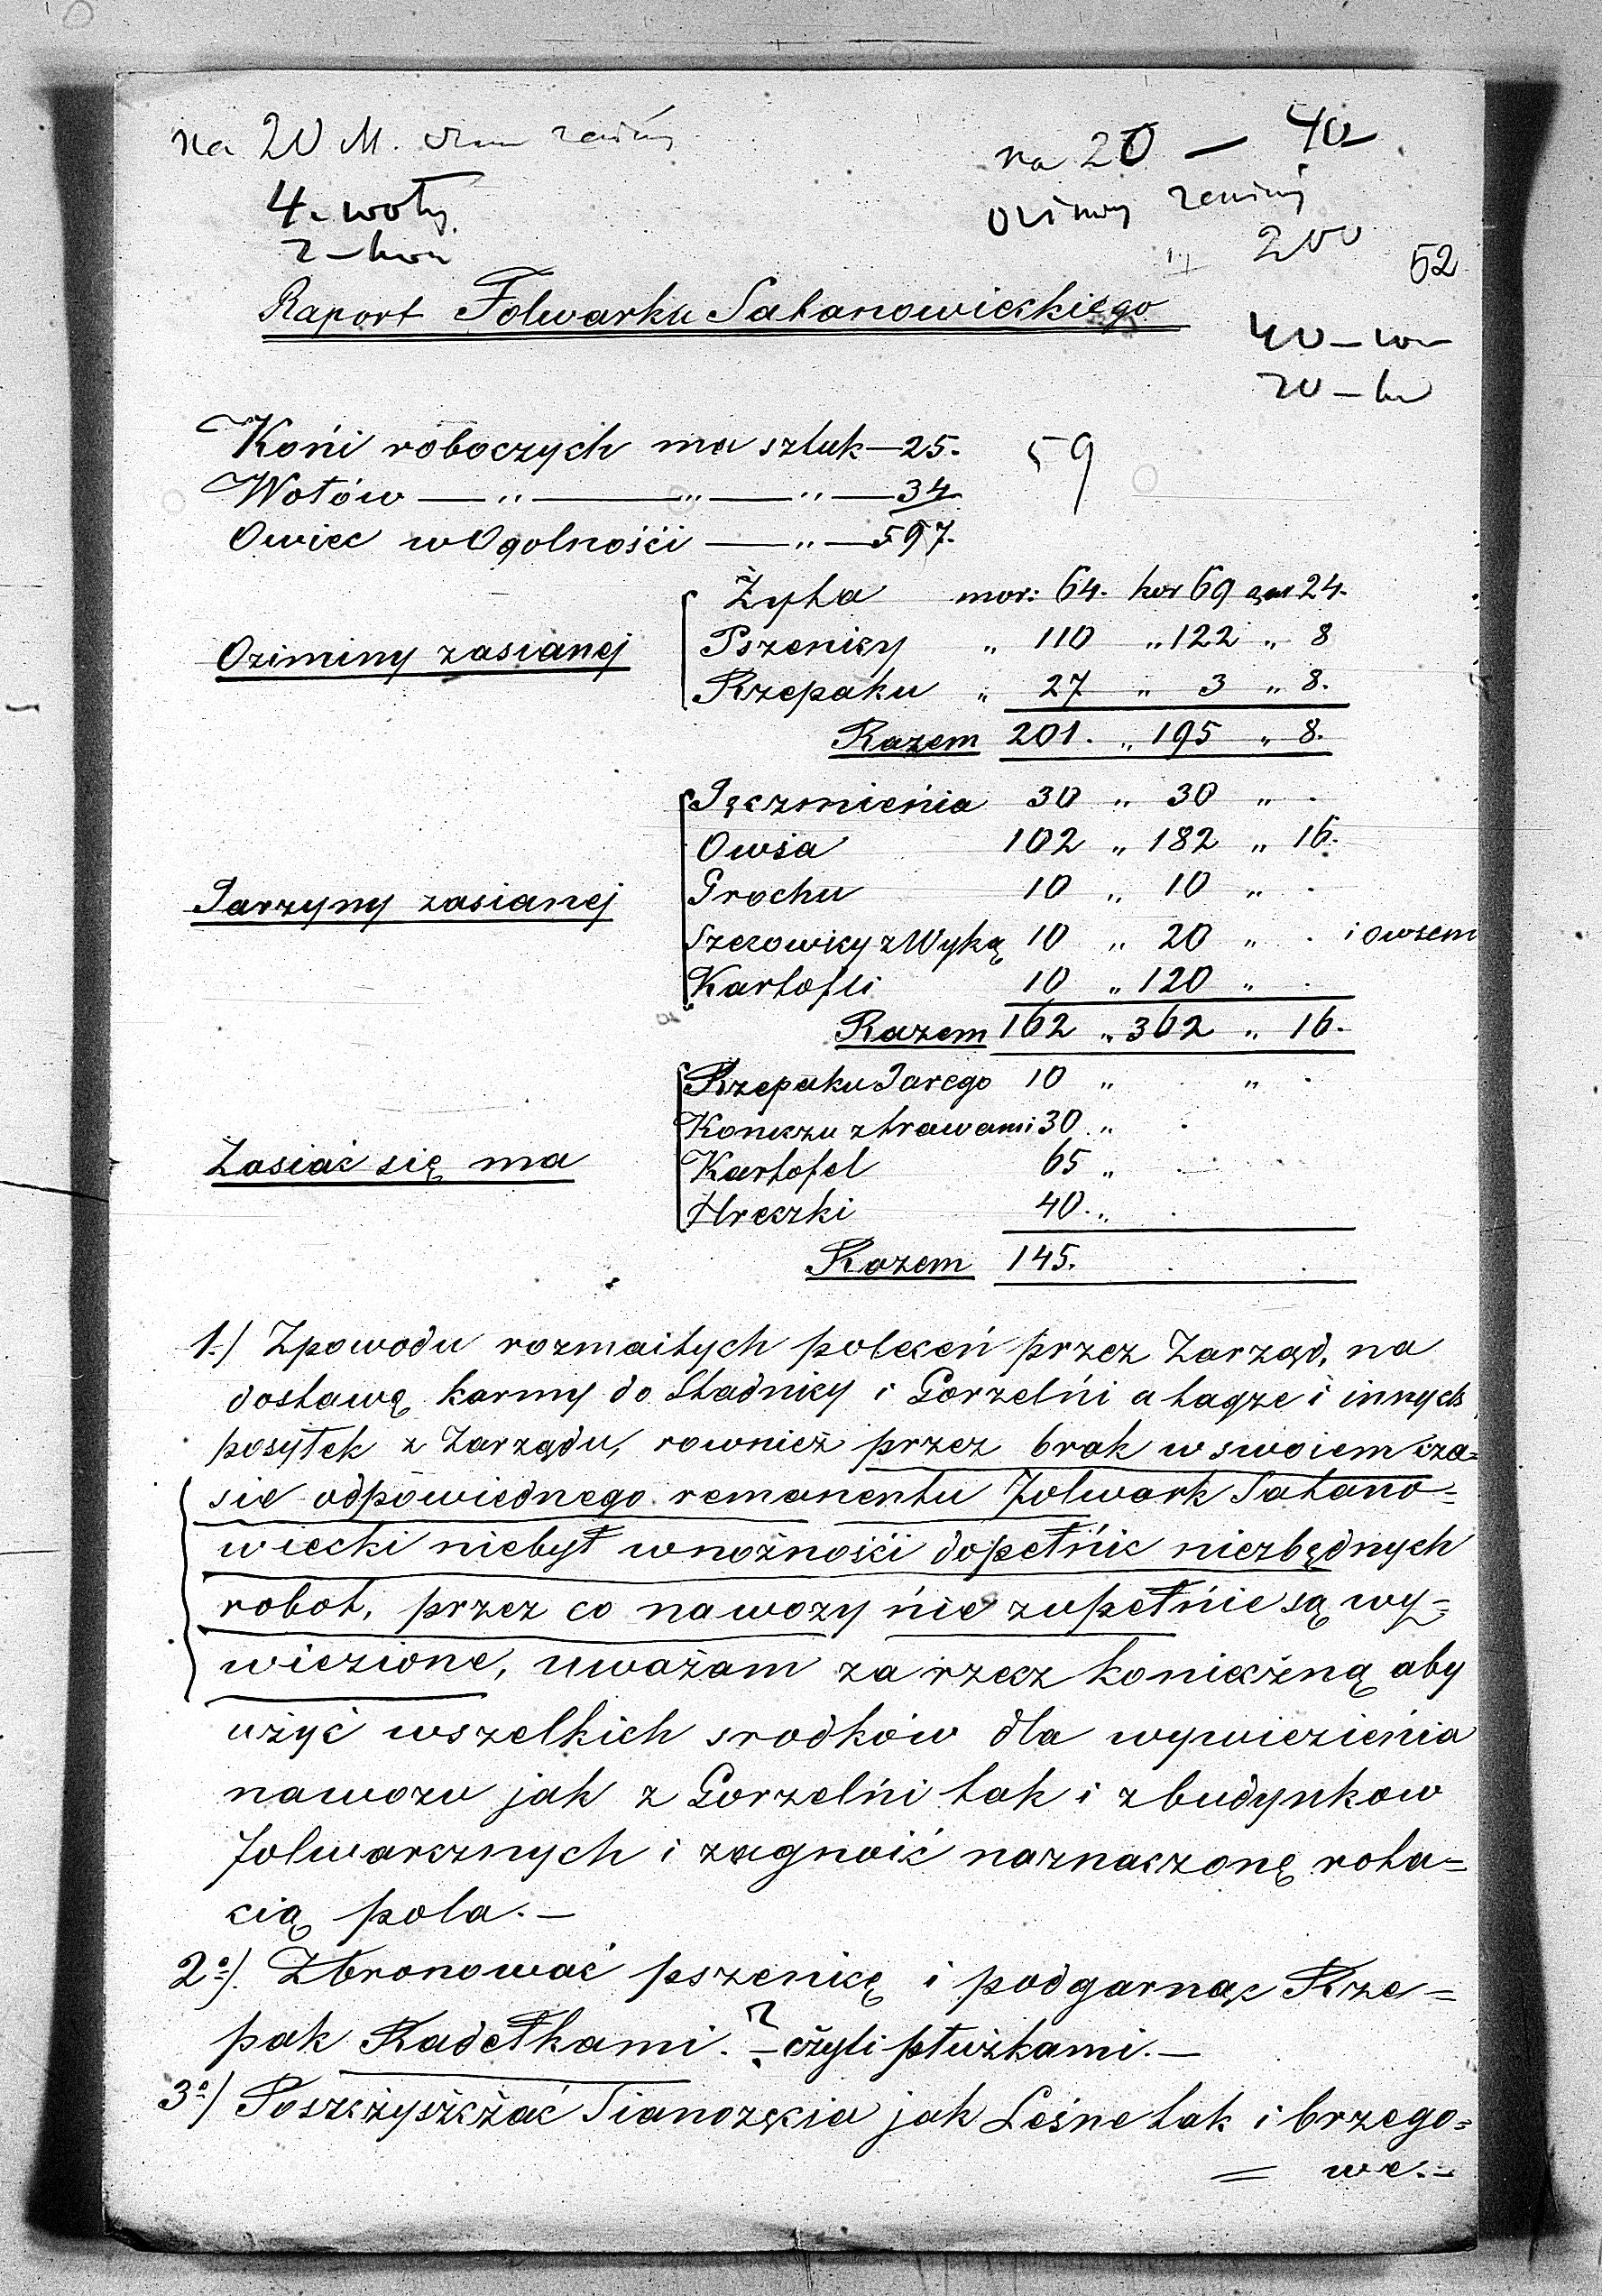 na 20 M.
na 20 — 40
4. woły
ozimny
2 — koni
" 200
52
Raport Folwarku Satanowieckiego
40 — wo
20 — ko
Końi roboczych ma sztuk — 25. 59
Wołów — " — " — " — 34
Owiec w Ogolnośći — " — 597.
Ozimíny zasianej
Żyta mor: 64. kor 69 gar 24.
Pszenicy " 110 " 122 " 8
Rzepaku " 27 " 3 " 8.
Razem 201. " 195 " 8.
Jarzyny zasianej
Jęczmieńia 30 " 30 " .
Owsa 102 " 182 " 16.
Grochu 10 " 10 " .
Szecowicy z Wyką 10 " 20 " . i owsem
Kartofli 10 " 120 " .
Razem 162 " 362 " 16.
Zasiać się ma
Rzepaku Jarego 10 " . " .
Koniczu z trawami 30 " .
Kartofel 65 " .
Hreczki 40. " .
Razem 145.
1.) Zpowodu rozmaitych poleceń przez Zarząd, na
dostawę karmy do Stadnicy i Gorzelńi a tagże i innych
posyłek z Zarządu, rownież przez brak w swoiem cza=
sie odpowiednego remanentu Folwark Satano=
wiecki niebył wnożnośći dopełńic niezbędnych
robot, przez co nawozy ńie zupełńie są wy=
wiezione, uważam za rzecz konieczną aby
użyć wszelkich srodków dla wywiezieńia
nawozu jak z Gorzelńi tak i z budynkow
Folwarcznych i zagnoić naznaczonę rota=
cią pola. —
2º). Zbronować pszenicę i podgarnąc Rze=
pak Radełkami. ? — czyli płużkami. —
3º) Poszczyszczać Sianozęcia jak Leśne tak i brzego=
= we. —